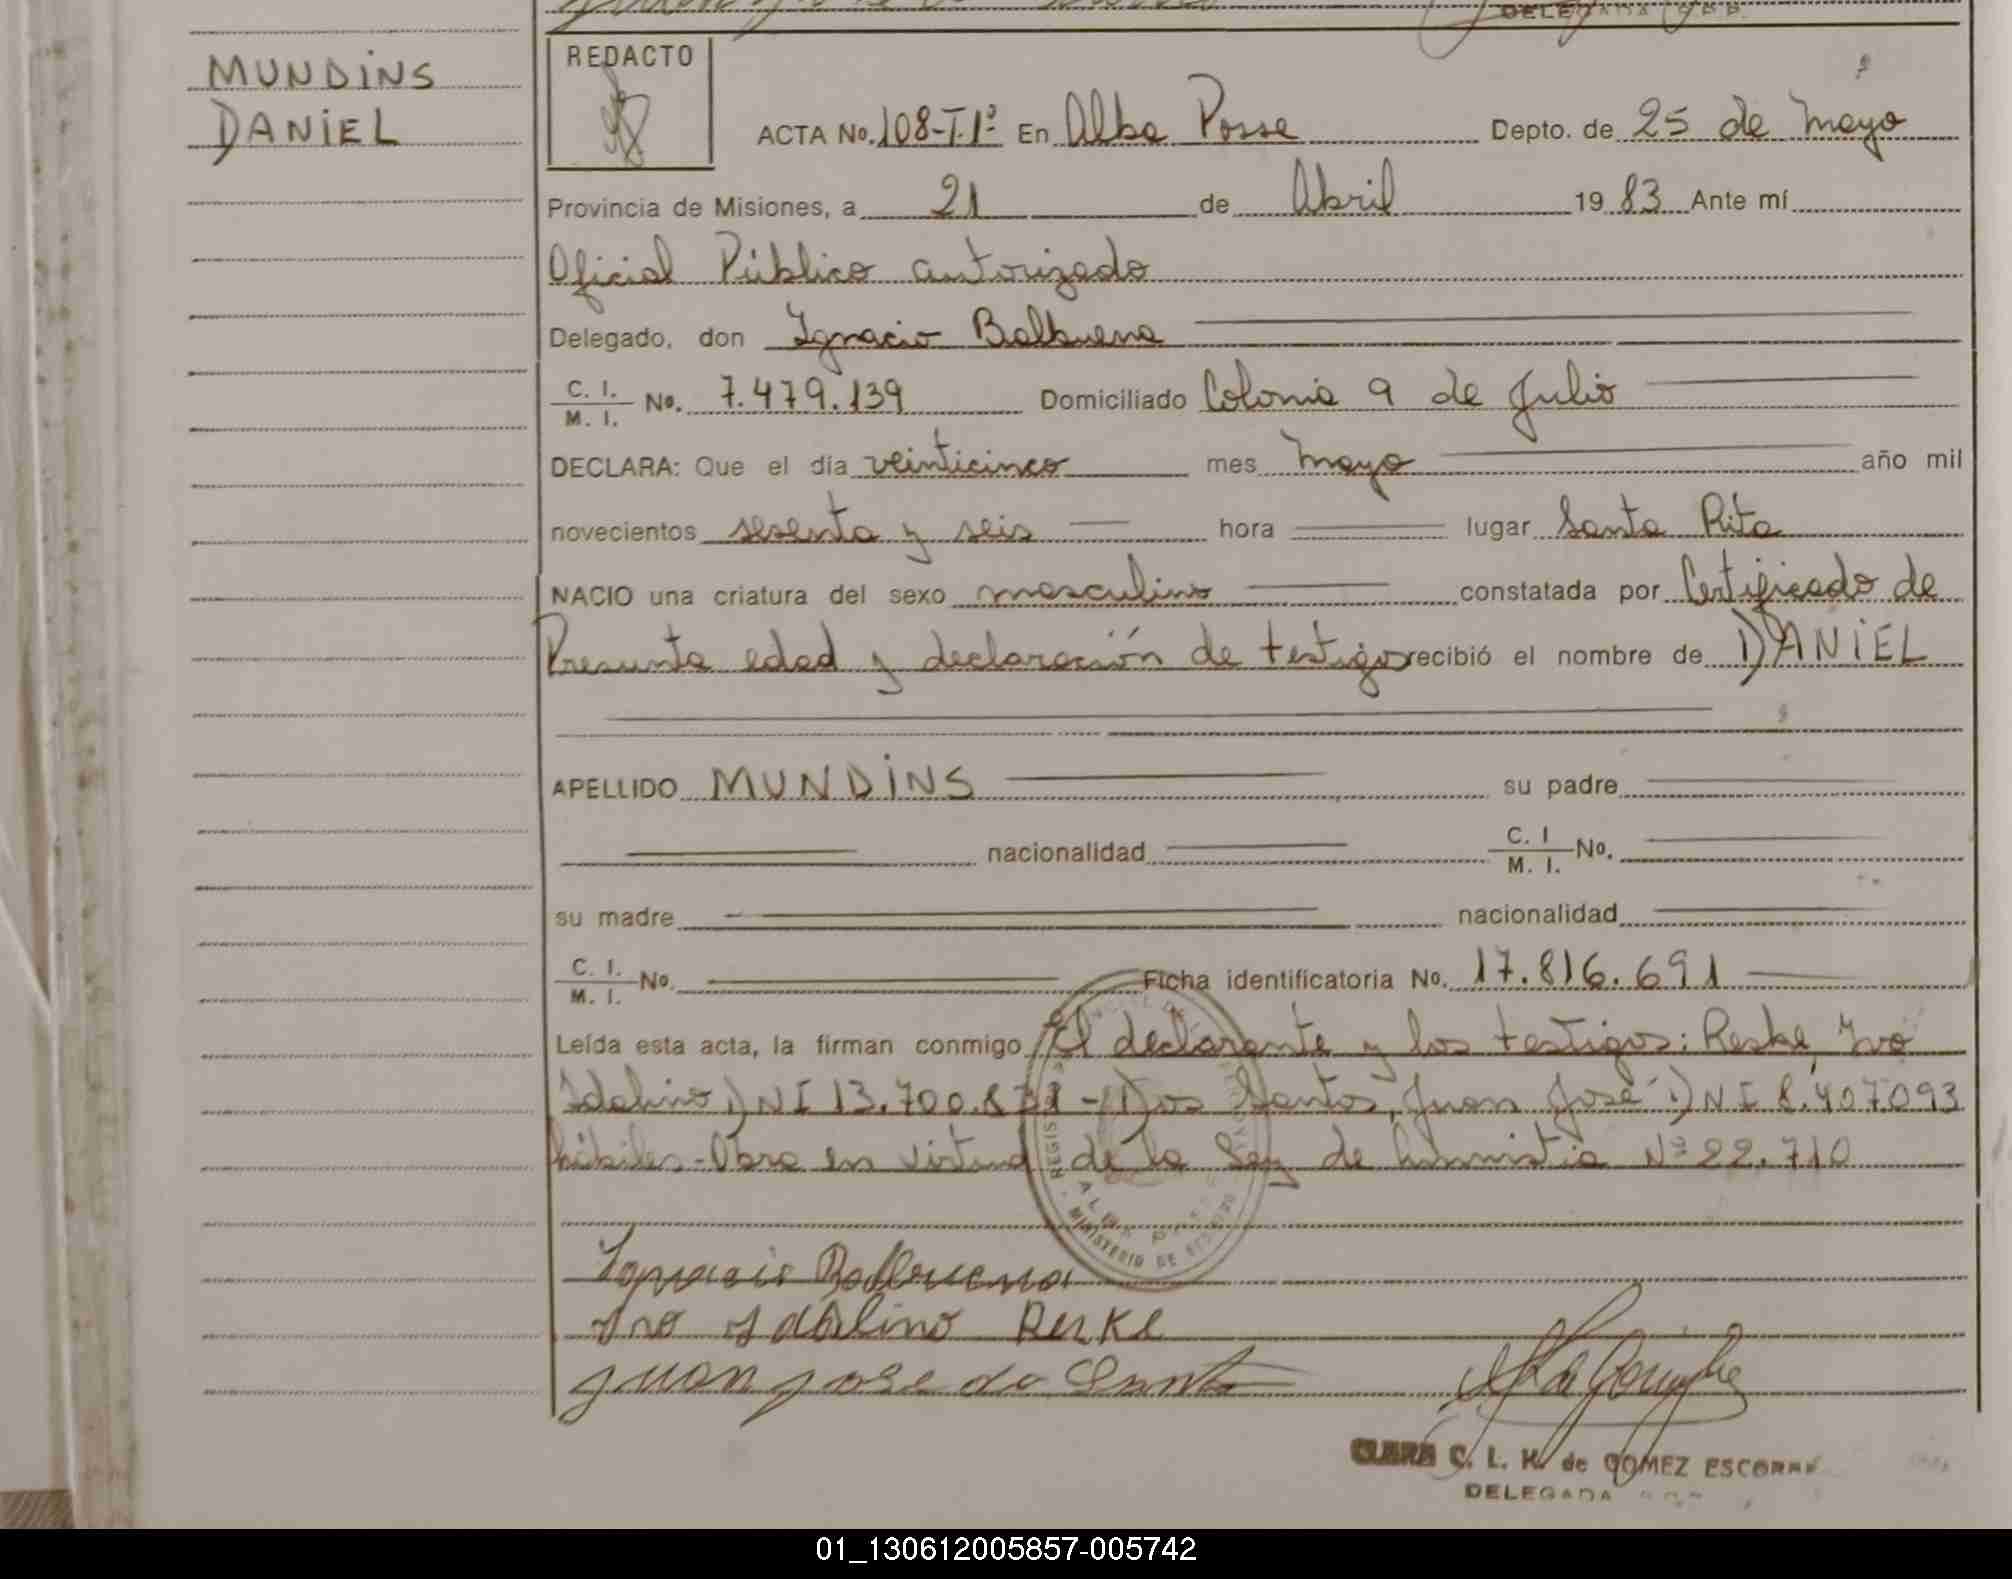 DELEGADA
MUNDINS
DANIEL
REDACTO
ACTA No. 108-T.1º En Alba Posse Depto. de 25 de Mayo
Provincia de Misiones, a 21 de Abril 19 83 Ante mí
Oficial Público autorizado
Delegado, don Ignacio Balbuena
C. I. / M. I. No. 7.479.139 Domiciliado Colonia 9 de Julio
DECLARA: Que el día veinticinco mes Mayo año mil
novecientos sesenta y seis hora lugar Santa Rita
NACIO una criatura del sexo masculino constatada por Certificado de
Presunta edad y declaración de testigos recibió el nombre de DANIEL
APELLIDO MUNDINS su padre
nacionalidad C. I / M. I. No.
su madre nacionalidad
C. I. / M. I. No. Ficha identificatoria No. 17.816.691
Leída esta acta, la firman conmigo El declarante y los testigos: Reske, Ivo
Idalino DNI Dos Santos, Juan José DNI 8.407.093
hábiles - Obra en virtud de la Ley de Amnistia Nº 22.710
MINISTERIO DE
Ignacio Balbuena
Ivo Idalino Reske
Juan Jose do Santo
CLARA C. L. K. de GOMEZ ESCORAR
DELEGADA
01_130612005857-005742